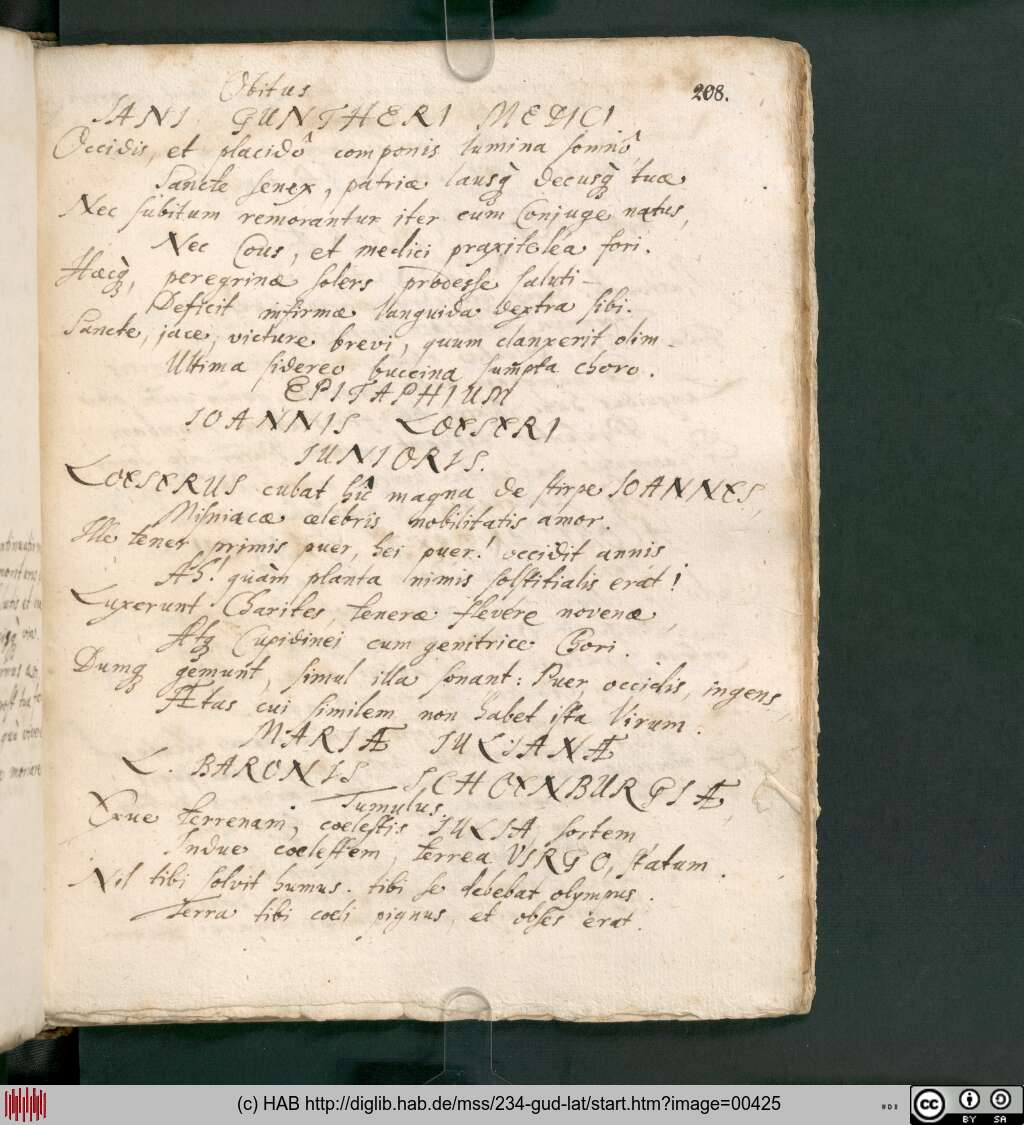 208.
Obitus
IANI GUNTHERI MEDICI
Occidis, et placidô componis lumina somnô,
Sancte senex, patriæ lausq̀ decusq̀ tuæ
Nec subitum remorantur iter cum Conjuge natus,
Nec Cous, et medici praxitelea fori.
Hæcq̀, peregrinæ solers prodesse saluti
Deficit infirmæ languida dextra sibi.
Sancte, jace, victure brevi, quum clanxerit olim
Ultima sidereo buccina sumpta choro.
EPITAPHIUM
IOANNIS LOESERI
IUNIORIS.
LOESERUS cubat hîc magna de stirpe IOANNES,
Misniacæ celebris nobilitatis amor.
Ille tener primis puer, hei puer! occidit annis
Ah! quàm planta nimis solstitialis erat!
Luxerunt Charites, teneræ flevére novenæ,
Atq Cupidinei cum genitrice Chori.
Dumq gemunt, simul illa sonant: Puer occidis, ingens,
Ætas cui similem non habet ista Virum.
MARIÆ IULIANÆ
L. BARONIS SCHOENBURGIÆ,
Tumulus.
Exue terrenam, coelestis IULIA, sortem
Indue coelestem, terrea VIRGO, statum.
Nil tibi solvit humus. tibi se debebat olympus.
Terra tibi coeli pignus et obses erat.
(c) HAB http://diglib.hab.de/mss/234-gud-lat/start.htm?image=00425
cc BY SA